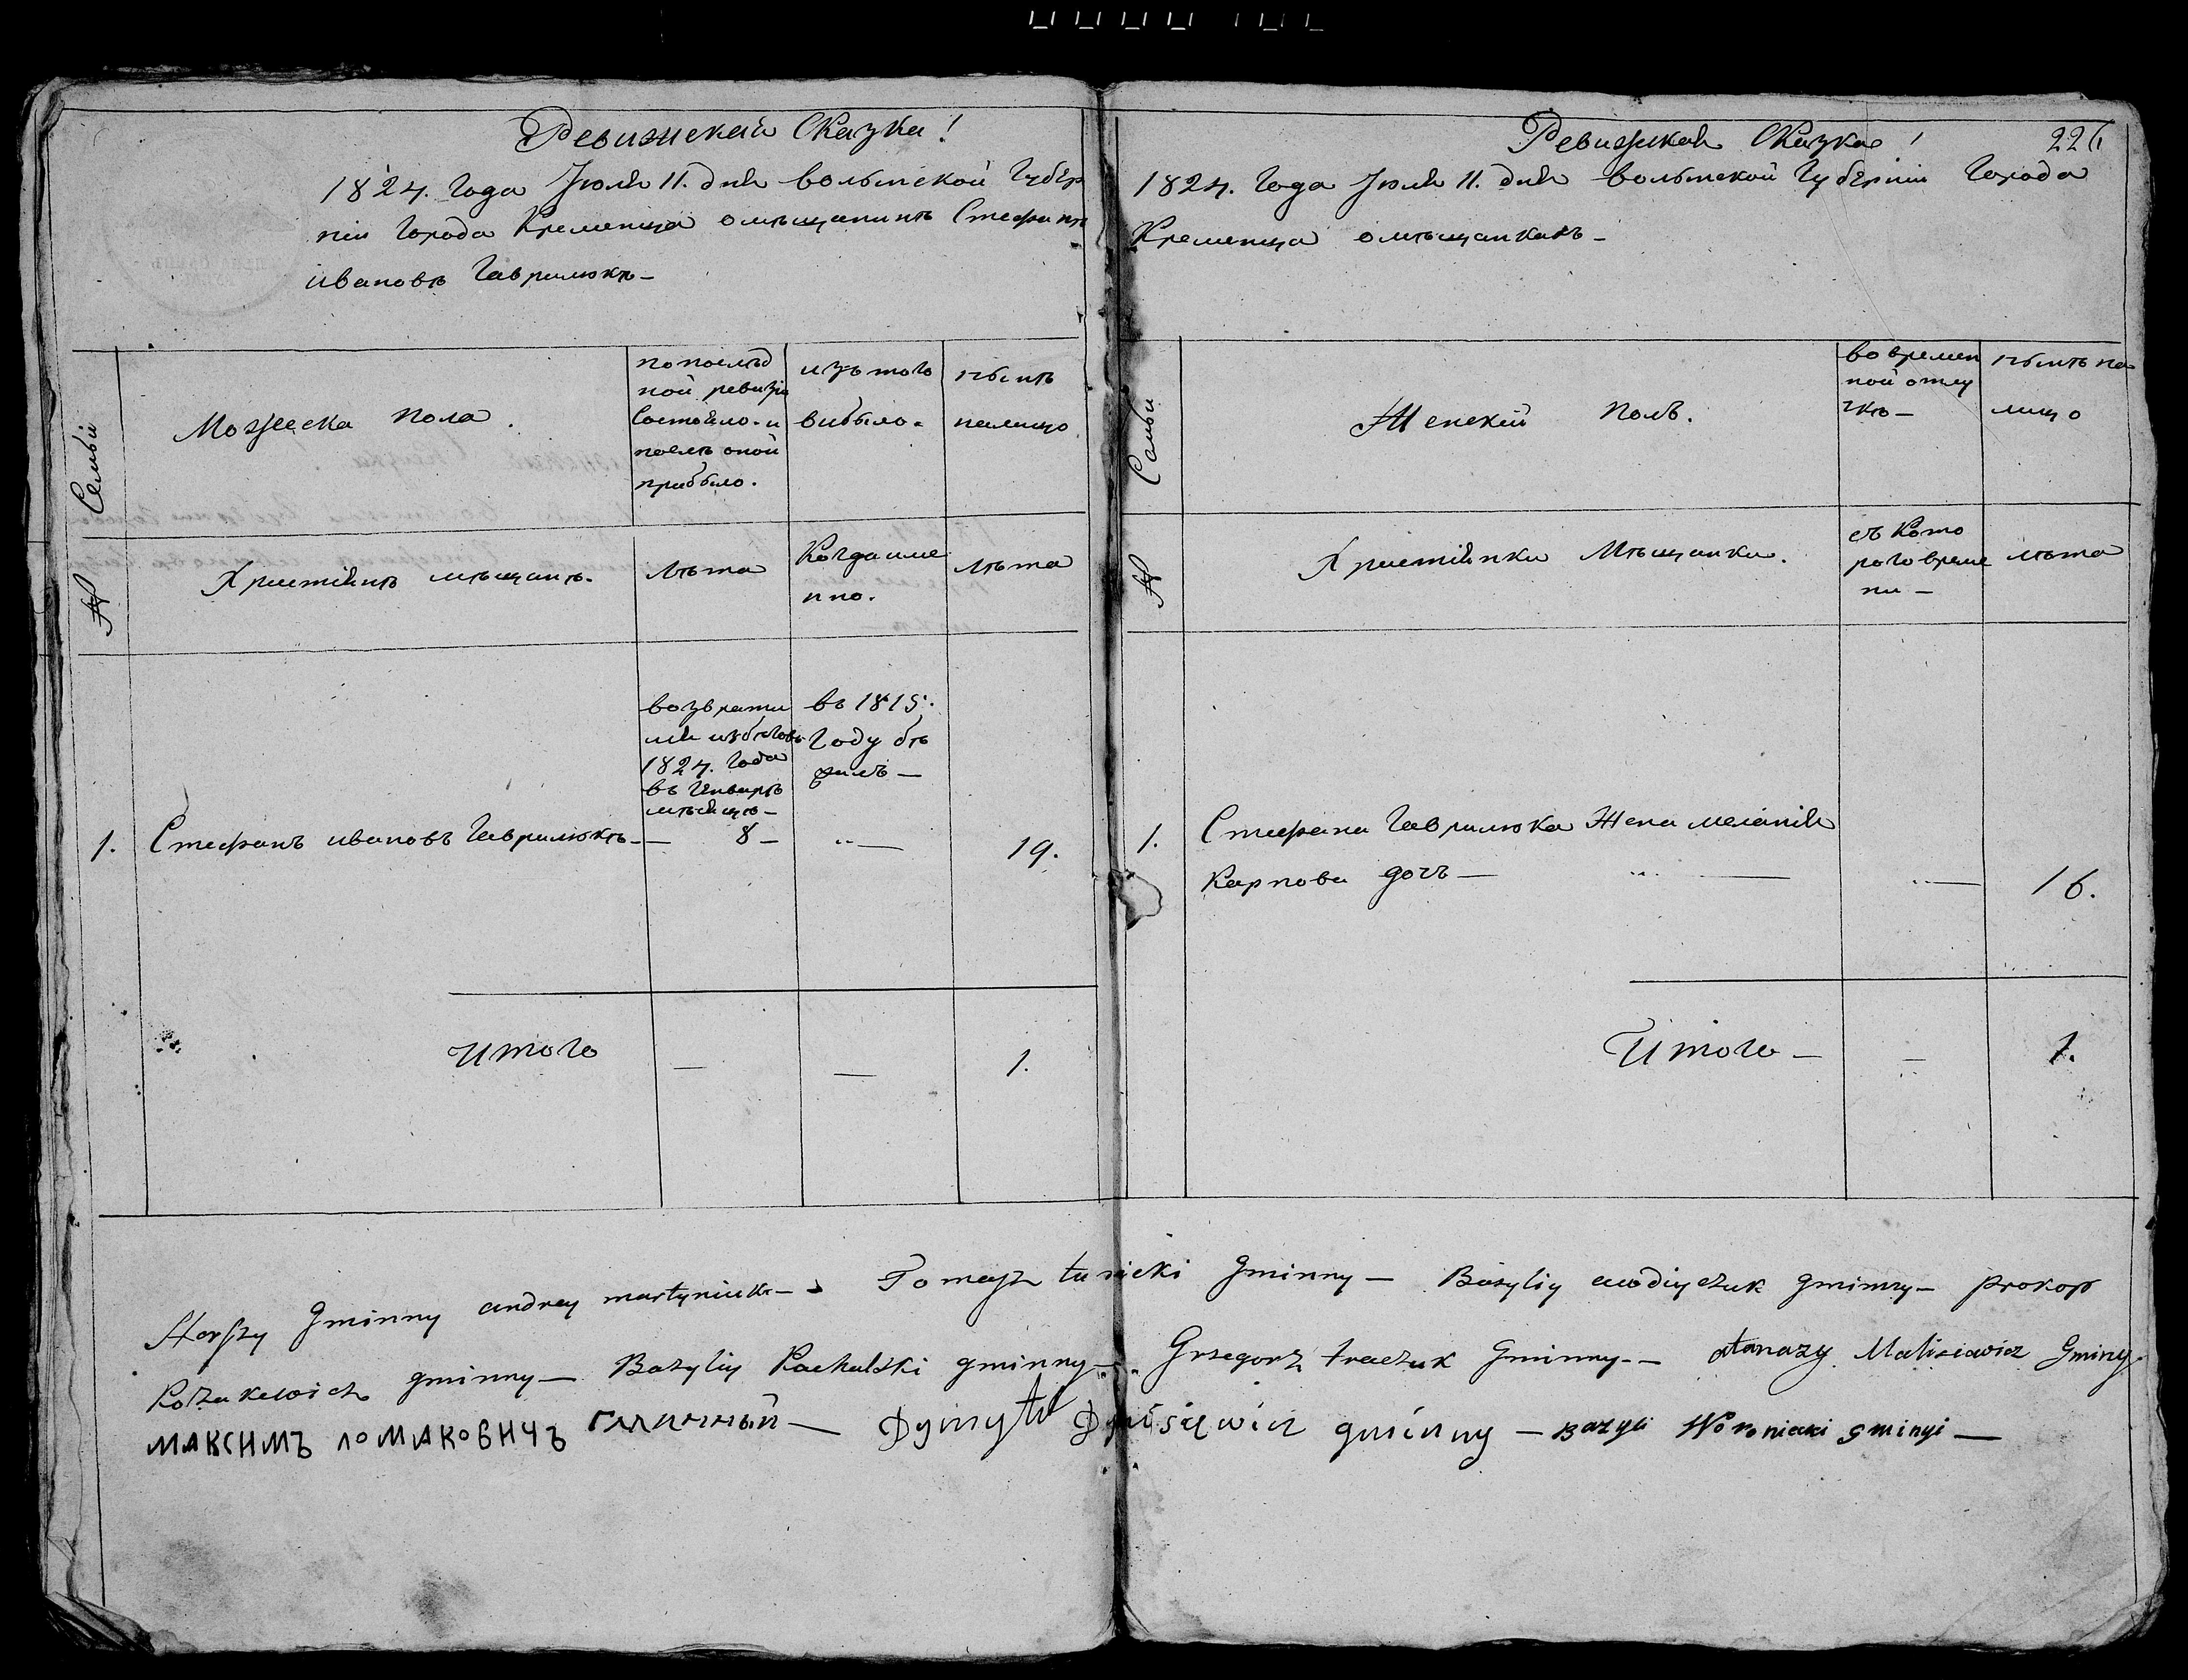 Ревижская Сказка!
1824. Года Июля 11. дня волынской Губер
нии Города Кременца омѣщанинѣ Стефанѣ
Ивановѣ Гаврилюкѣ—
Семьи
Можеска пола.
по послѣд
ной ревизіи
состояло. и
послѣ оной
прибыло.
изъ того
выбыло.
нынѣ
налицо
№
Христіянѣ мѣщанѣ.
лѣта
Когда име
нно.
лѣта
возврати
лся избѣговъ
1824. Года
въ Генварѣ
мѣсяцѣ—
въ 1815.
Году бѣ
жилъ—
1. Стефанъ ивановъ Гаврилюкъ— 8— „— 19.
Итого — — 1.
Ревижская Сказка! 226
1824. Года Июля 11. дня волынской Губернии Города
Кременца омѣщанкахъ—
Семьи
Женскій полъ.
во времен
ной отлу
чкѣ—
нынѣ на
лицо
№
Христіянки Мѣщанки.
съ Кото
рого време
ни—
лѣта
1. Стефана Гаврилюка Жена меланія
Карпова дочъ— „— „— 16.
Итого— — 1.
Starszy Gminny andrey martyniuk— Tomasz Gminny— Bazyliy gminny— prokop
Kozakewicz gminny— Bazyliy Kachalski gminny— Grzegorz traczuk Gminny— atanazy Malisiewicz Gminy
максимъ ломаковичъ гминный— Dymytr Dynisiewicz gminny— Bazyli Woroniecki gminyi—